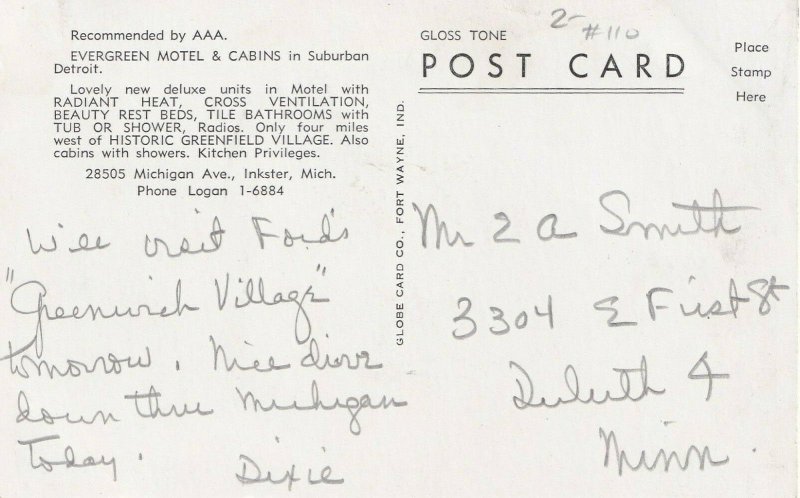 Recommended by AAA.
EVERGREEN MOTEL & CABINS in Suburban
Detroit.
Lovely new deluxe units in Motel with
RADIANT HEAT, CROSS VENTILATION,
BEAUTY REST BEDS, TILE BATHROOMS with
TUB OR SHOWER, Radios. Only four miles
west of HISTORIC GREENFIELD VILLAGE. Also
cabins with showers. Kitchen Privileges.
28505 Michigan Ave., Inkster, Mich.
Phone Logan 1-6884
Will visit Ford's
"Greenwich Village"
tomorrow. Nice drive
down thru Michigan
Today.
Dixie
GLOBE CARD CO., FORT WAYNE, IND.
2-
#110
GLOSS TONE
POST CARD
Place
Stamp
Here
Mr 2 A Smith
3304 E First St
Duluth 4
Minn.